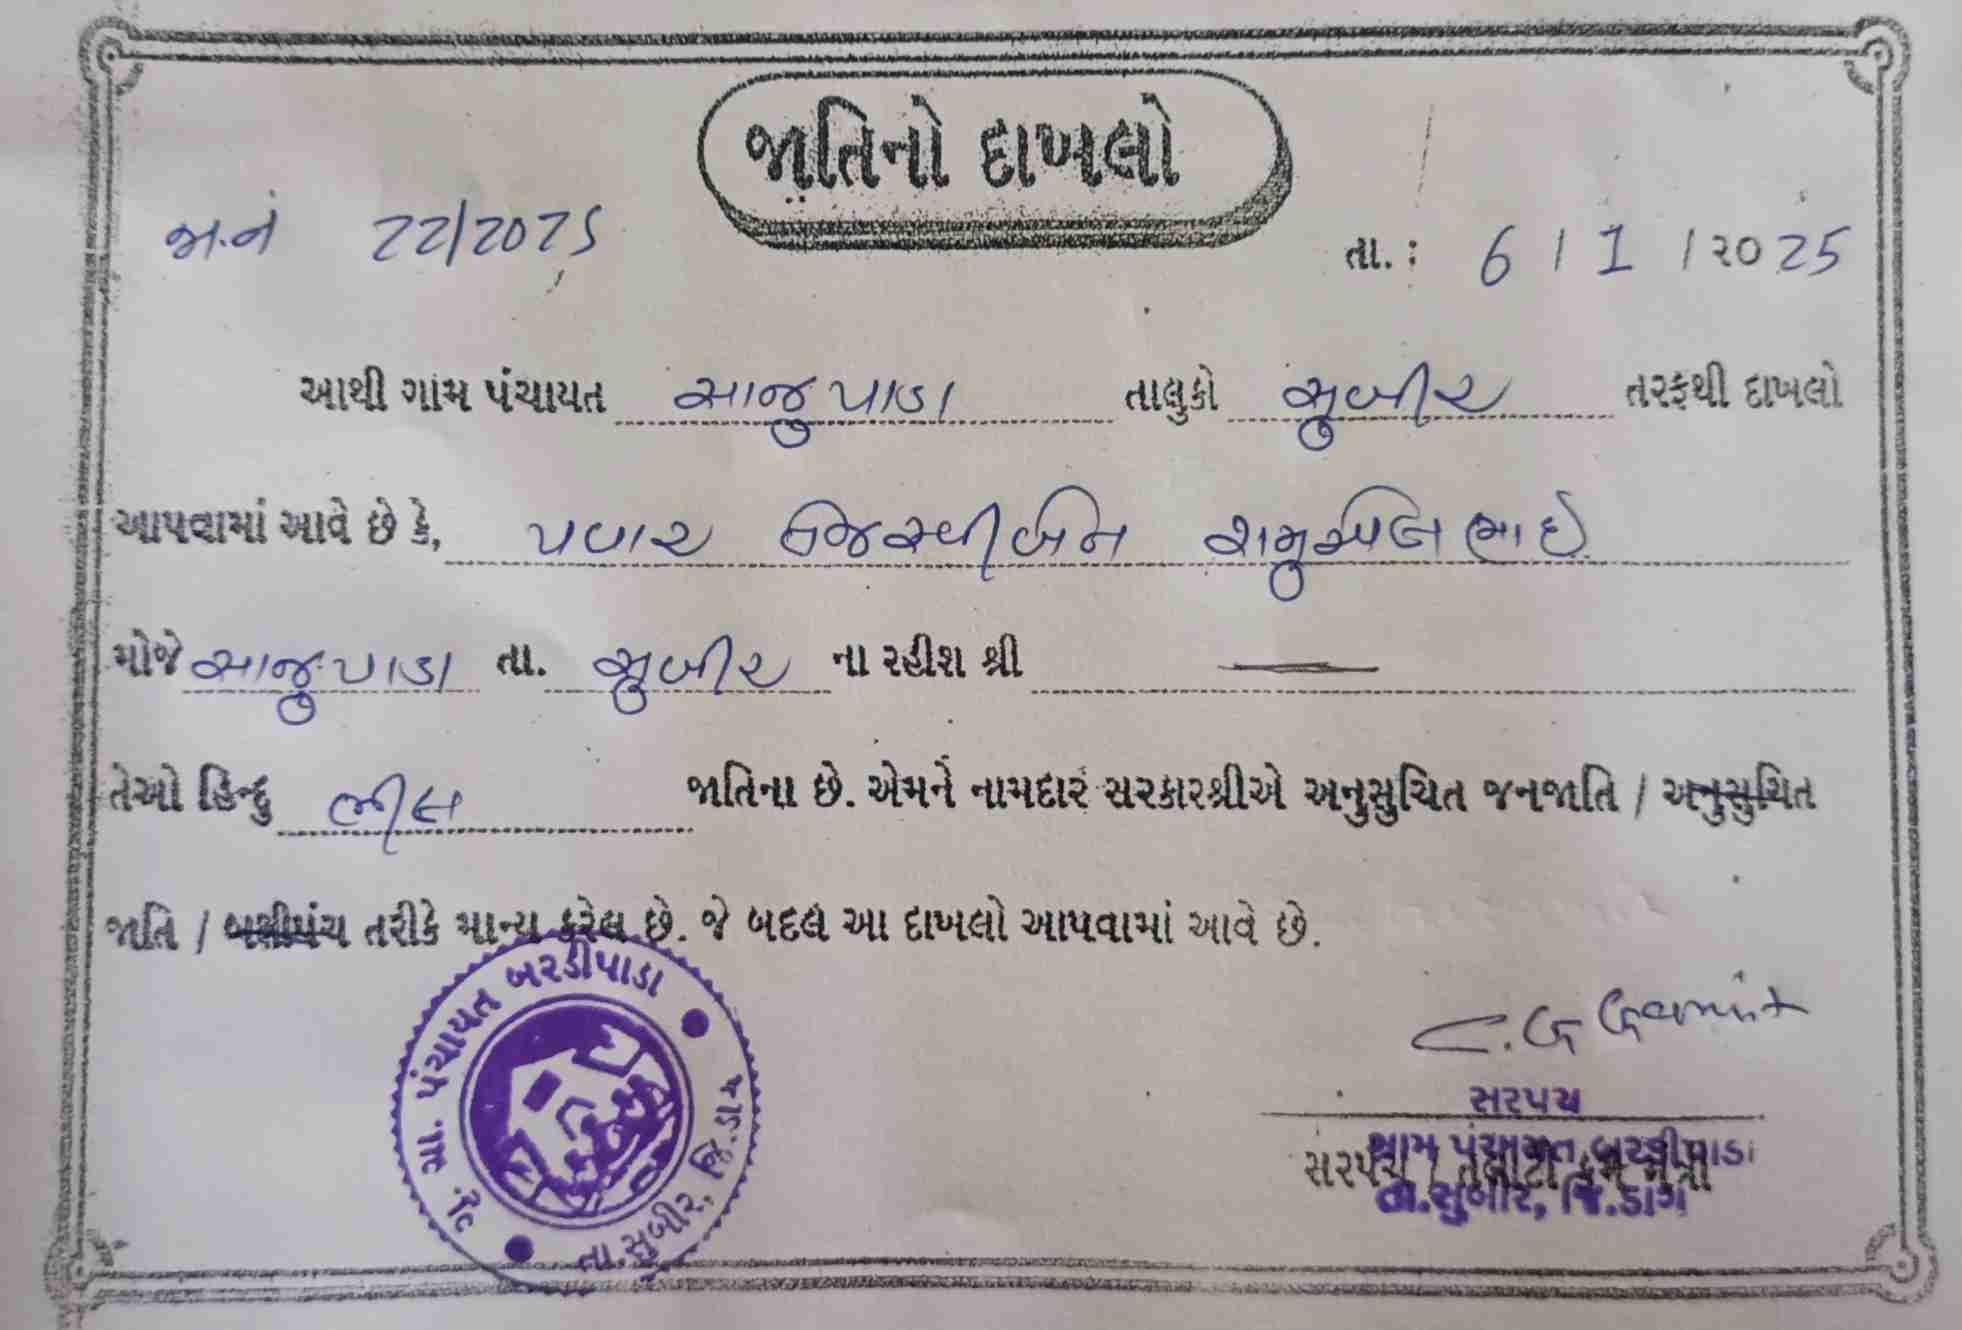 જાતિનો દાખલો
જા.નં 22/2025
તા. : 6 / 1 / ૨૦25
આથી ગ્રામ પંચાયત સાજુપાડા તાલુકો સુબીર તરફથી દાખલો
આપવામાં આવે છે કે, પવાર તેજસ્વીબેન શમુએલભાઈ
મોજે સાજુપાડા તા. સુબીર ના રહીશ શ્રી —
તેઓ હિન્દુ ભીલ જાતિના છે. એમને નામદાર સરકારશ્રીએ અનુસુચિત જનજાતિ / અનુસુચિત
જાતિ / બક્ષીપંચ તરીકે માન્ય કરેલ છે. જે બદલ આ દાખલો આપવામાં આવે છે.
ગ્રા. પંચાયત બરડીપાડા
તા.સુબીર, જિ.ડાંગ
C. G Gamit
સરપંચ
ગ્રામ પંચાયત બરડીપાડા
સરપંચ / તલાટી કમ મંત્રી
તા.સુબીર, જિ.ડાંગ